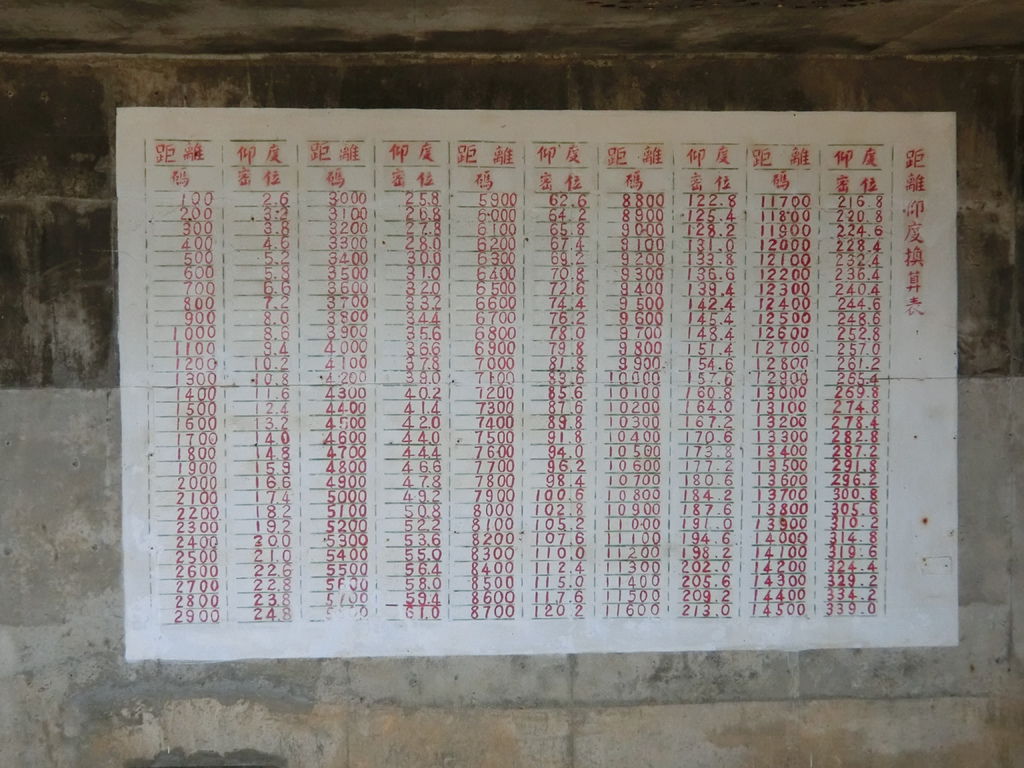 距離仰度換算表
距離 仰度 距離 仰度 距離 仰度 距離 仰度 距離 仰度
碼 密位 碼 密位 碼 密位 碼 密位 碼 密位
100 2.6 3000 25.8 5900 62.6 8800 122.8 11700 216.8
200 3.2 3100 26.8 6000 64.2 8900 125.4 11800 220.8
300 3.8 3200 27.8 6100 65.8 9000 128.2 11900 224.6
400 4.6 3300 28.0 6200 67.4 9100 131.0 12000 228.4
500 5.2 3400 30.0 6300 69.2 9200 133.8 12100 232.4
600 5.8 3500 31.0 6400 70.8 9300 136.6 12200 236.4
700 6.6 3600 32.0 6500 72.6 9400 139.4 12300 240.4
800 7.2 3700 33.2 6600 74.4 9500 142.4 12400 244.6
900 8.0 3800 34.4 6700 76.2 9600 145.4 12500 248.6
1000 8.6 3900 35.6 6800 78.0 9700 148.4 12600 252.8
1100 9.4 4000 36.6 6900 79.8 9800 151.4 12700 257.0
1200 10.2 4100 37.8 7000 81.8 9900 154.6 12800 261.2
1300 10.8 4200 39.0 7100 83.6 10000 157.6 12900 265.4
1400 11.6 4300 40.2 7200 85.6 10100 160.8 13000 269.8
1500 12.4 4400 41.4 7300 87.6 10200 164.0 13100 274.8
1600 13.2 4500 42.0 7400 89.8 10300 167.2 13200 278.4
1700 14.0 4600 44.0 7500 91.8 10400 170.6 13300 282.8
1800 14.8 4700 44.4 7600 94.0 10500 173.8 13400 287.2
1900 15.9 4800 46.6 7700 96.2 10600 177.2 13500 291.8
2000 16.6 4900 47.8 7800 98.4 10700 180.6 13600 296.2
2100 17.4 5000 49.2 7900 100.6 10800 184.2 13700 300.8
2200 18.2 5100 50.8 8000 102.8 10900 187.6 13800 305.6
2300 19.2 5200 52.2 8100 105.2 11000 191.0 13900 310.2
2400 20.0 5300 53.6 8200 107.6 11100 194.6 14000 314.8
2500 21.0 5400 55.0 8300 110.0 11200 198.2 14100 319.6
2600 22.0 5500 56.4 8400 112.4 11300 202.0 14200 324.4
2700 22.8 5600 58.0 8500 115.0 11400 205.6 14300 329.2
2800 23.8 59.4 8600 117.6 11500 209.2 14400 334.2
2900 24.8 61.0 8700 120.2 11600 213.0 14500 339.0